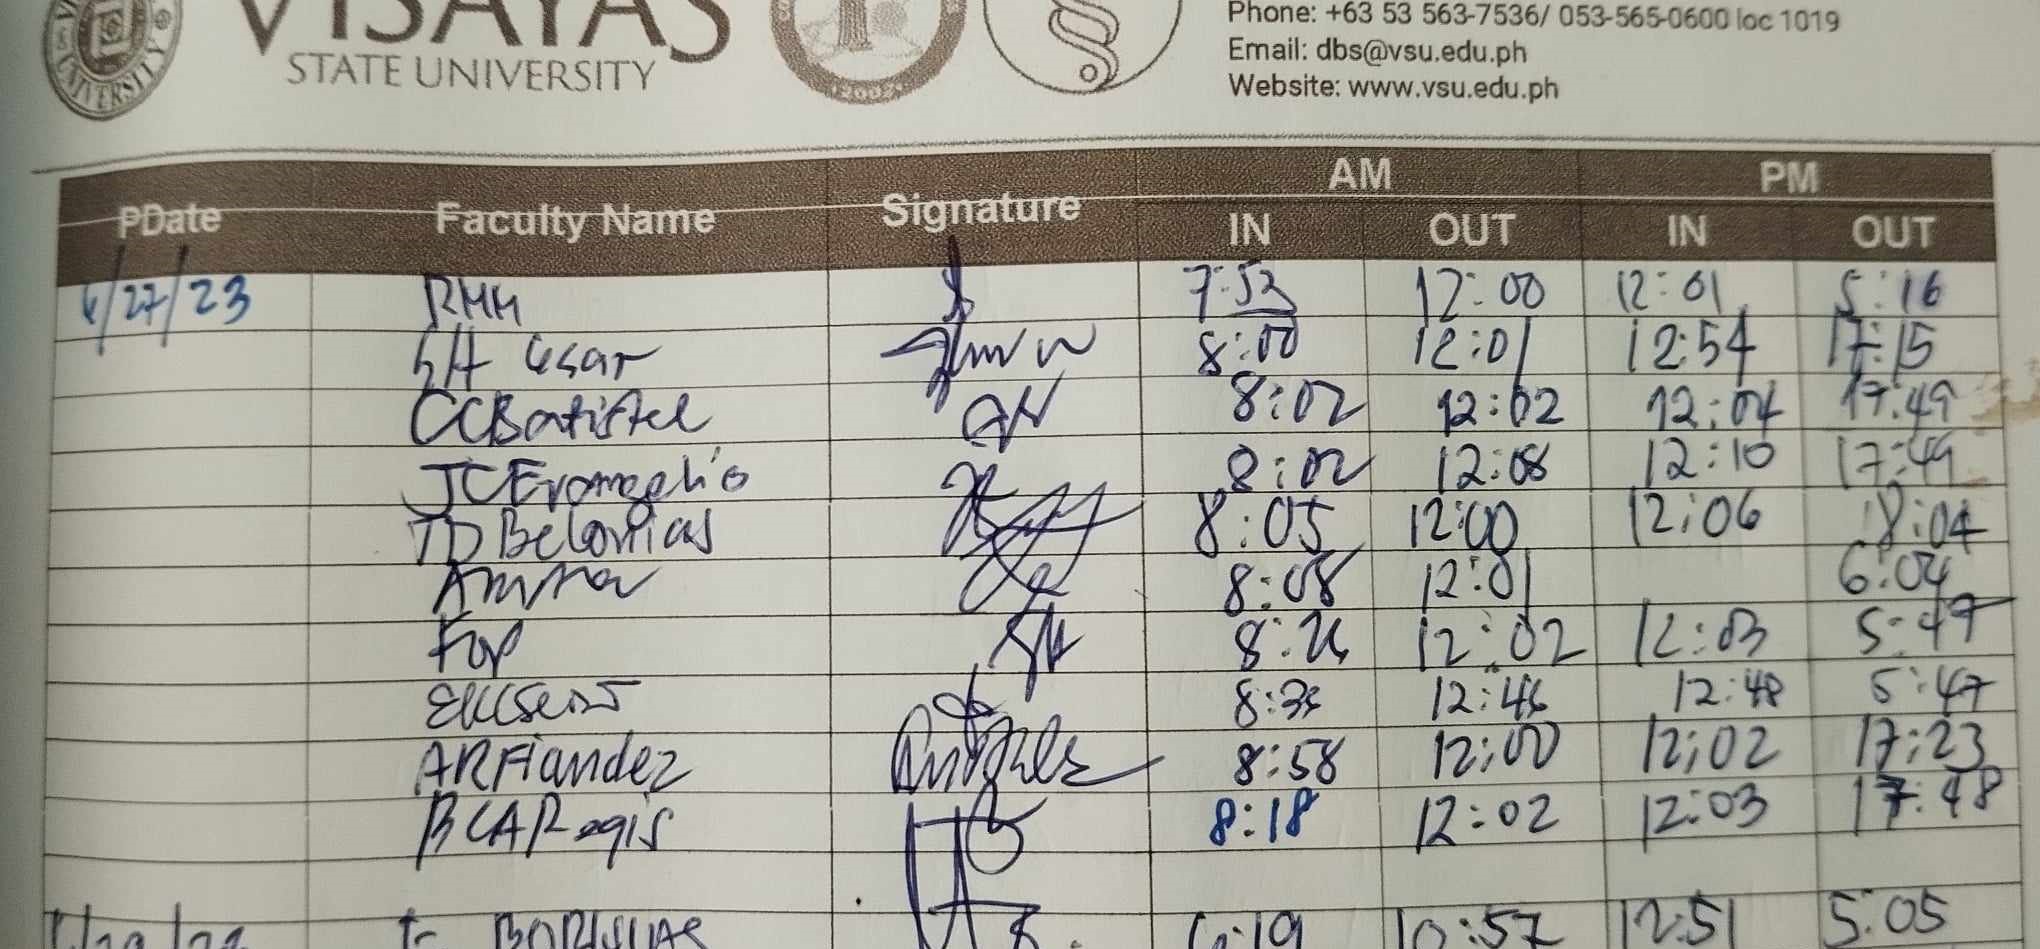 VISAYAS
STATE UNIVERSITY
UNIVERSITY
Phone: +63 53 563-7536/ 053-565-0600 loc 1019
Email: dbs@vsu.edu.ph
Website: www.vsu.edu.ph
AM PM
PDate Faculty Name Signature IN OUT IN OUT
4/27/23 RMM 7:52 12:00 12:01 5:16
8:00 12:01 12:54 17:15
CCBatistel 8:02 12:02 12:04 17:49
JCEvangelio 8:02 12:08 12:10 17:49
8:05 12:00 12:06 18:04
8:08 12:01 6:04
Fop 8:26 12:02 12:03 5:47
12:46 12:48 5:47
ARFiandez 8:58 12:00 12:02 17:23
BCARegis 8:18 12:02 12:03 17:48
10:57 12:51 5:05